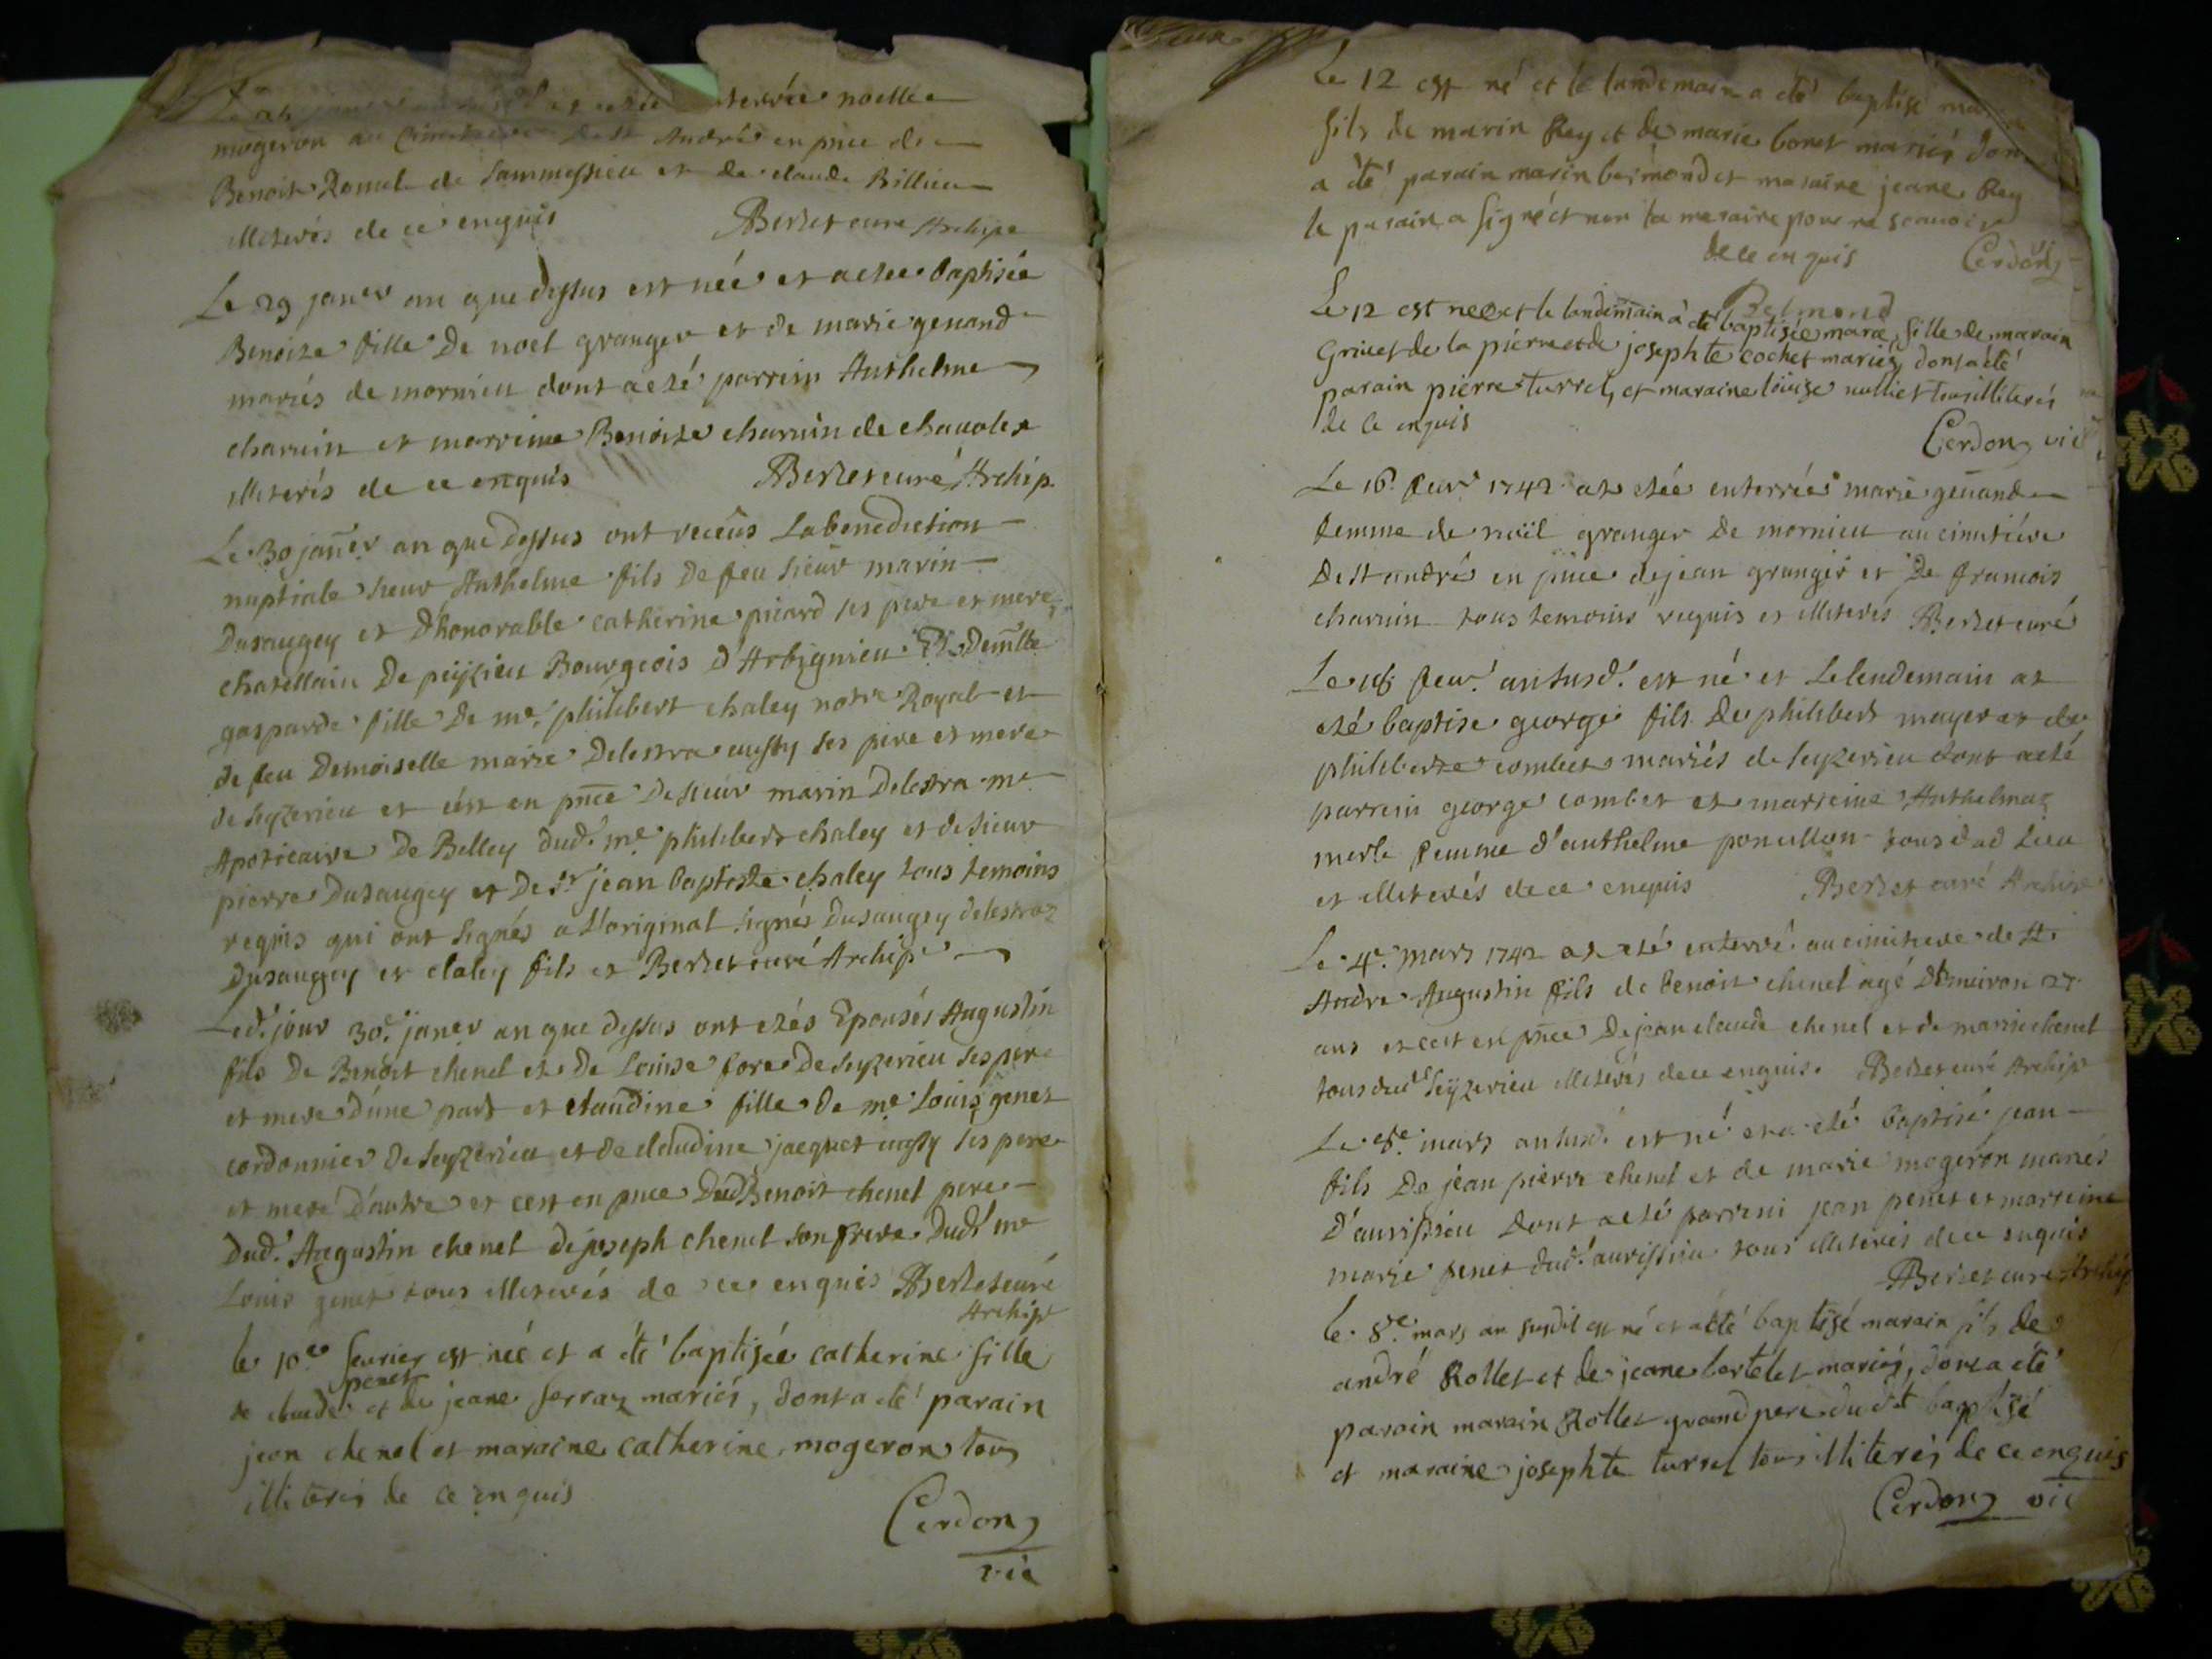 terrée noelle
mogeron au Cimetiere de St André en pnce de
Benoit Romul de Sammessieu et de claude Billieu
illiterés de ce enquis Berzet curé Archipr
Le 29 janer an que dessus est née et a etee baptisée
Benoite fille de noel granger et de marie genand
mariés de mornieu dont a eté parrim Anthelme
charuin et marreine Benoite charuin de chauoley
illiterés de ce enquis Berzet curé Archip.
Le 30 janer an que dessus ont receus La benediction
nuptiale sieur Anthelme fils de feu sieur marin
Dusaugey et d'honorable catherine picard ses pere et mere
chatellain De peyzieu Bourgeois d'Arbignieu Et Demlle
gasparde fille de me. philibert chaley notre Royal et
de feu Demoiselle marie Delestra ses pere et mere
de seyzerieu et cest en pnce De sieur marin Delestra me
Apoticaire De Belley dud. me philibert chaley et de sieur
pierre Dusaugey et de Sr jean baptiste chaley tous temoins
requis qui ont signés a L'original signés Dusaugey delestraz
Dusaugey et chaley fils et Berzet curé Archipr
Led. jour 30e janer an que dessus ont etés Epousés Augustin
fils De Benoit chenel et De Louise fore De seyzerieu ses pere
et mere d'une part et claudine fille de me Louis genet
cordonnier de seyzerieu et de claudine jacquet ses pere
et mere d'autre et cest en pnce Dud Benoit chenel pere
dud. Augustin chenel de joseph chenel son frere dud. me
Louis genet tous illiterés de ce enquis Berzet curé
Archipr
le 10e feurier est née et a été baptisée catherine fille
penet
de claude et de jeane ferraz mariés, dont a été parain
jean chenel et maraine catherine mogeron tous
illiterés de ce enquis
Cerdon
vic
Le 12 est né et le landemain a été baptisé
fils de marin Rey et de marie bonet mariés don
a été parain marin belmond et maraine jeane Rey
le parain a signé et non la maraine pour ne scauoir
de ce enquis Cerdon
Belmond
Le 12 est nee et le landemain à été baptisée marie, fille de marain
Griuet de la pierre et de josephte cochet mariés, dont a été
parain pierre turrel, et maraine louise tous illiterés
de ce enquis
Cerdon vic
Le 16. feur 1742 at etée enterrée marie genand
femme de noël granger de mornieu au cimetiére
De St andré en pnce de jean granger et de francois
charuin tous temoins requis et illiterés Berzet curé
Le feur. an susd. est né et Le lendemain at
eté baptise george fils De philibert mayer et de
philiberte combet mariés de seyzerieu dont a eté
parrein george combet et marreine Anthelmaz
merle femme d'anthelme tous dud Lieu
et illiterés de ce enquis Berzet curé Archipr
Le 4e. mars 1742 at eté enterré au cimitiere de St.
Andre Augustin fils de benoit chenel agé D'enuiron 27
ans et cest en pnce De jean claude chenel et de marin chenel
tous dud Seyzerieu illiterés de ce enquis. Berzet curé Archipr
Le 8e. mars an susd. est né et a eté baptisé jean
fils De jean pierre chenel et de marie mogeron mariés
d'aurissieu dont a eté parrein jean penet et marreine
marie penet dud. aurissieu tous illiterés de ce enquis
Berzet curé Archip
le. 8e. mars an susdit est né et a été baptisé marain fils de
andré Rollet et de jeane bertelet mariés, dont a été
parain marain Rollet grand pere dudit baptisé
et maraine josephte turrel tous illiterés de ce enquis
Cerdon vic